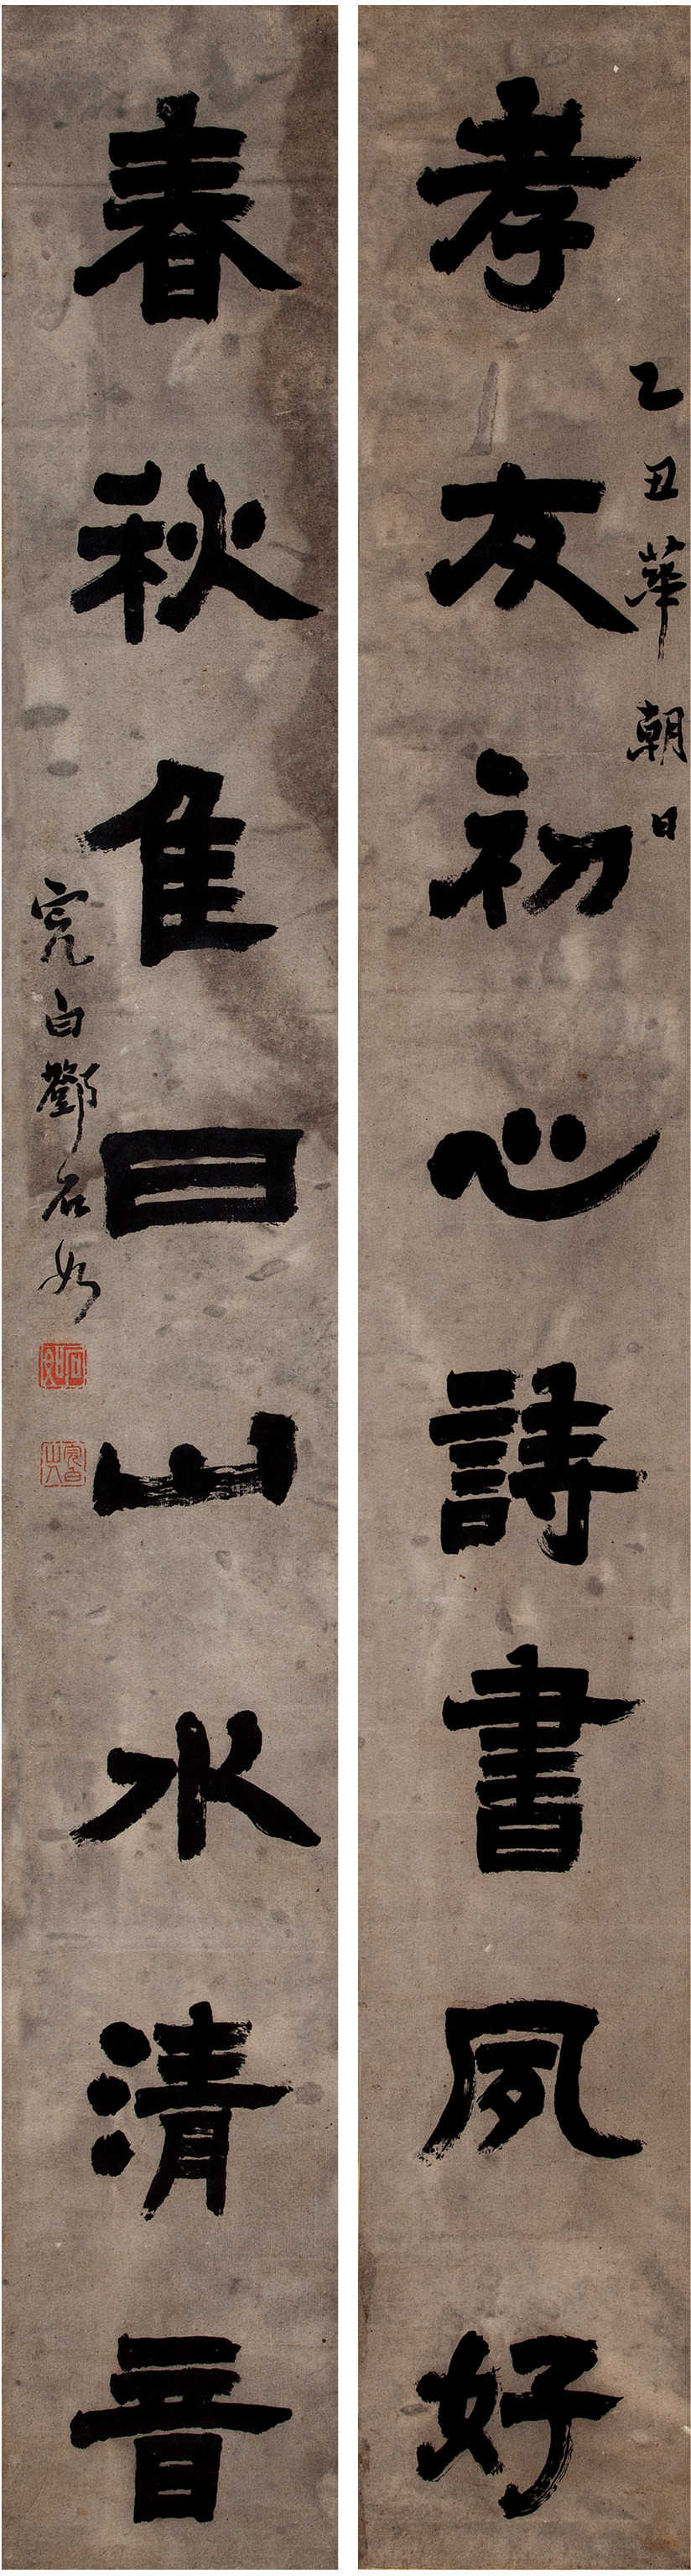 孝友初心詩書夙好
乙丑華朝日
春秋佳日山水清音
完白鄧石如
石如
完白山人